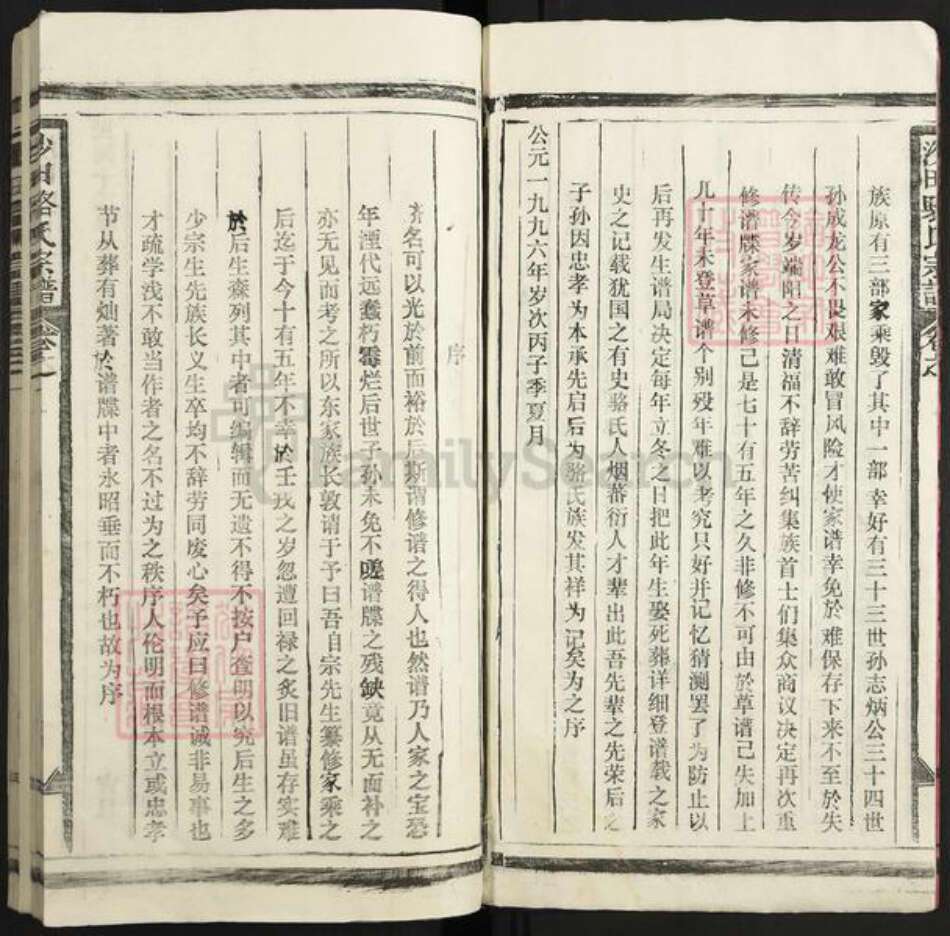 沙田骆氏宗谱 卷之一
族原有三部家乘毁了其中一部幸好有三十三世孙志炳公三十四世
孙成龙公不畏艰难敢冒风险才使家谱幸免於难保存下来不至於失
传今岁端阳之日清福不辞劳苦纠集族首士们集众商议决定再次重
修谱牒家谱未修已是七十有五年之久非修不可由於草谱已失加上
几十年未登草谱个别殁年难以考究只好并记忆猜测罢了为防止以
后再发生谱局决定每年立冬之日把此年生娶死葬详细登谱载之家
史之记载犹国之有史骆氏人烟蕃衍人才辈出此吾先辈之先荣后之
子孙因忠孝为本承先启后为骆氏族发其祥为记矣为之序
公元一九九六年岁次丙子季夏月
序
齐名可以光於前而裕於后斯谓修谱之得人也然谱乃人家之宝恐
年湮代远蠹朽霉烂后世子孙未免不嗟谱牒之残缺竟从无而补之
亦无见而考之所以东家族长敦请于予曰吾自宗先生纂修家乘之
后迄于今十有五年不幸於壬戌之岁忽遭回禄之炙旧谱虽存实难
於后生森列其中者可编辑而无遗不得不按户查明以究后生之多
少宗生先族长义生卒均不辞劳同废心矣予应曰修谱诚非易事也
才疏学浅不敢当作者之名不过为之秩序人伦明而根本立或忠孝
节从葬有灿著於谱牒中者永昭垂而不朽也故为序
沙田骆氏宗谱 卷之一
FamilySearch